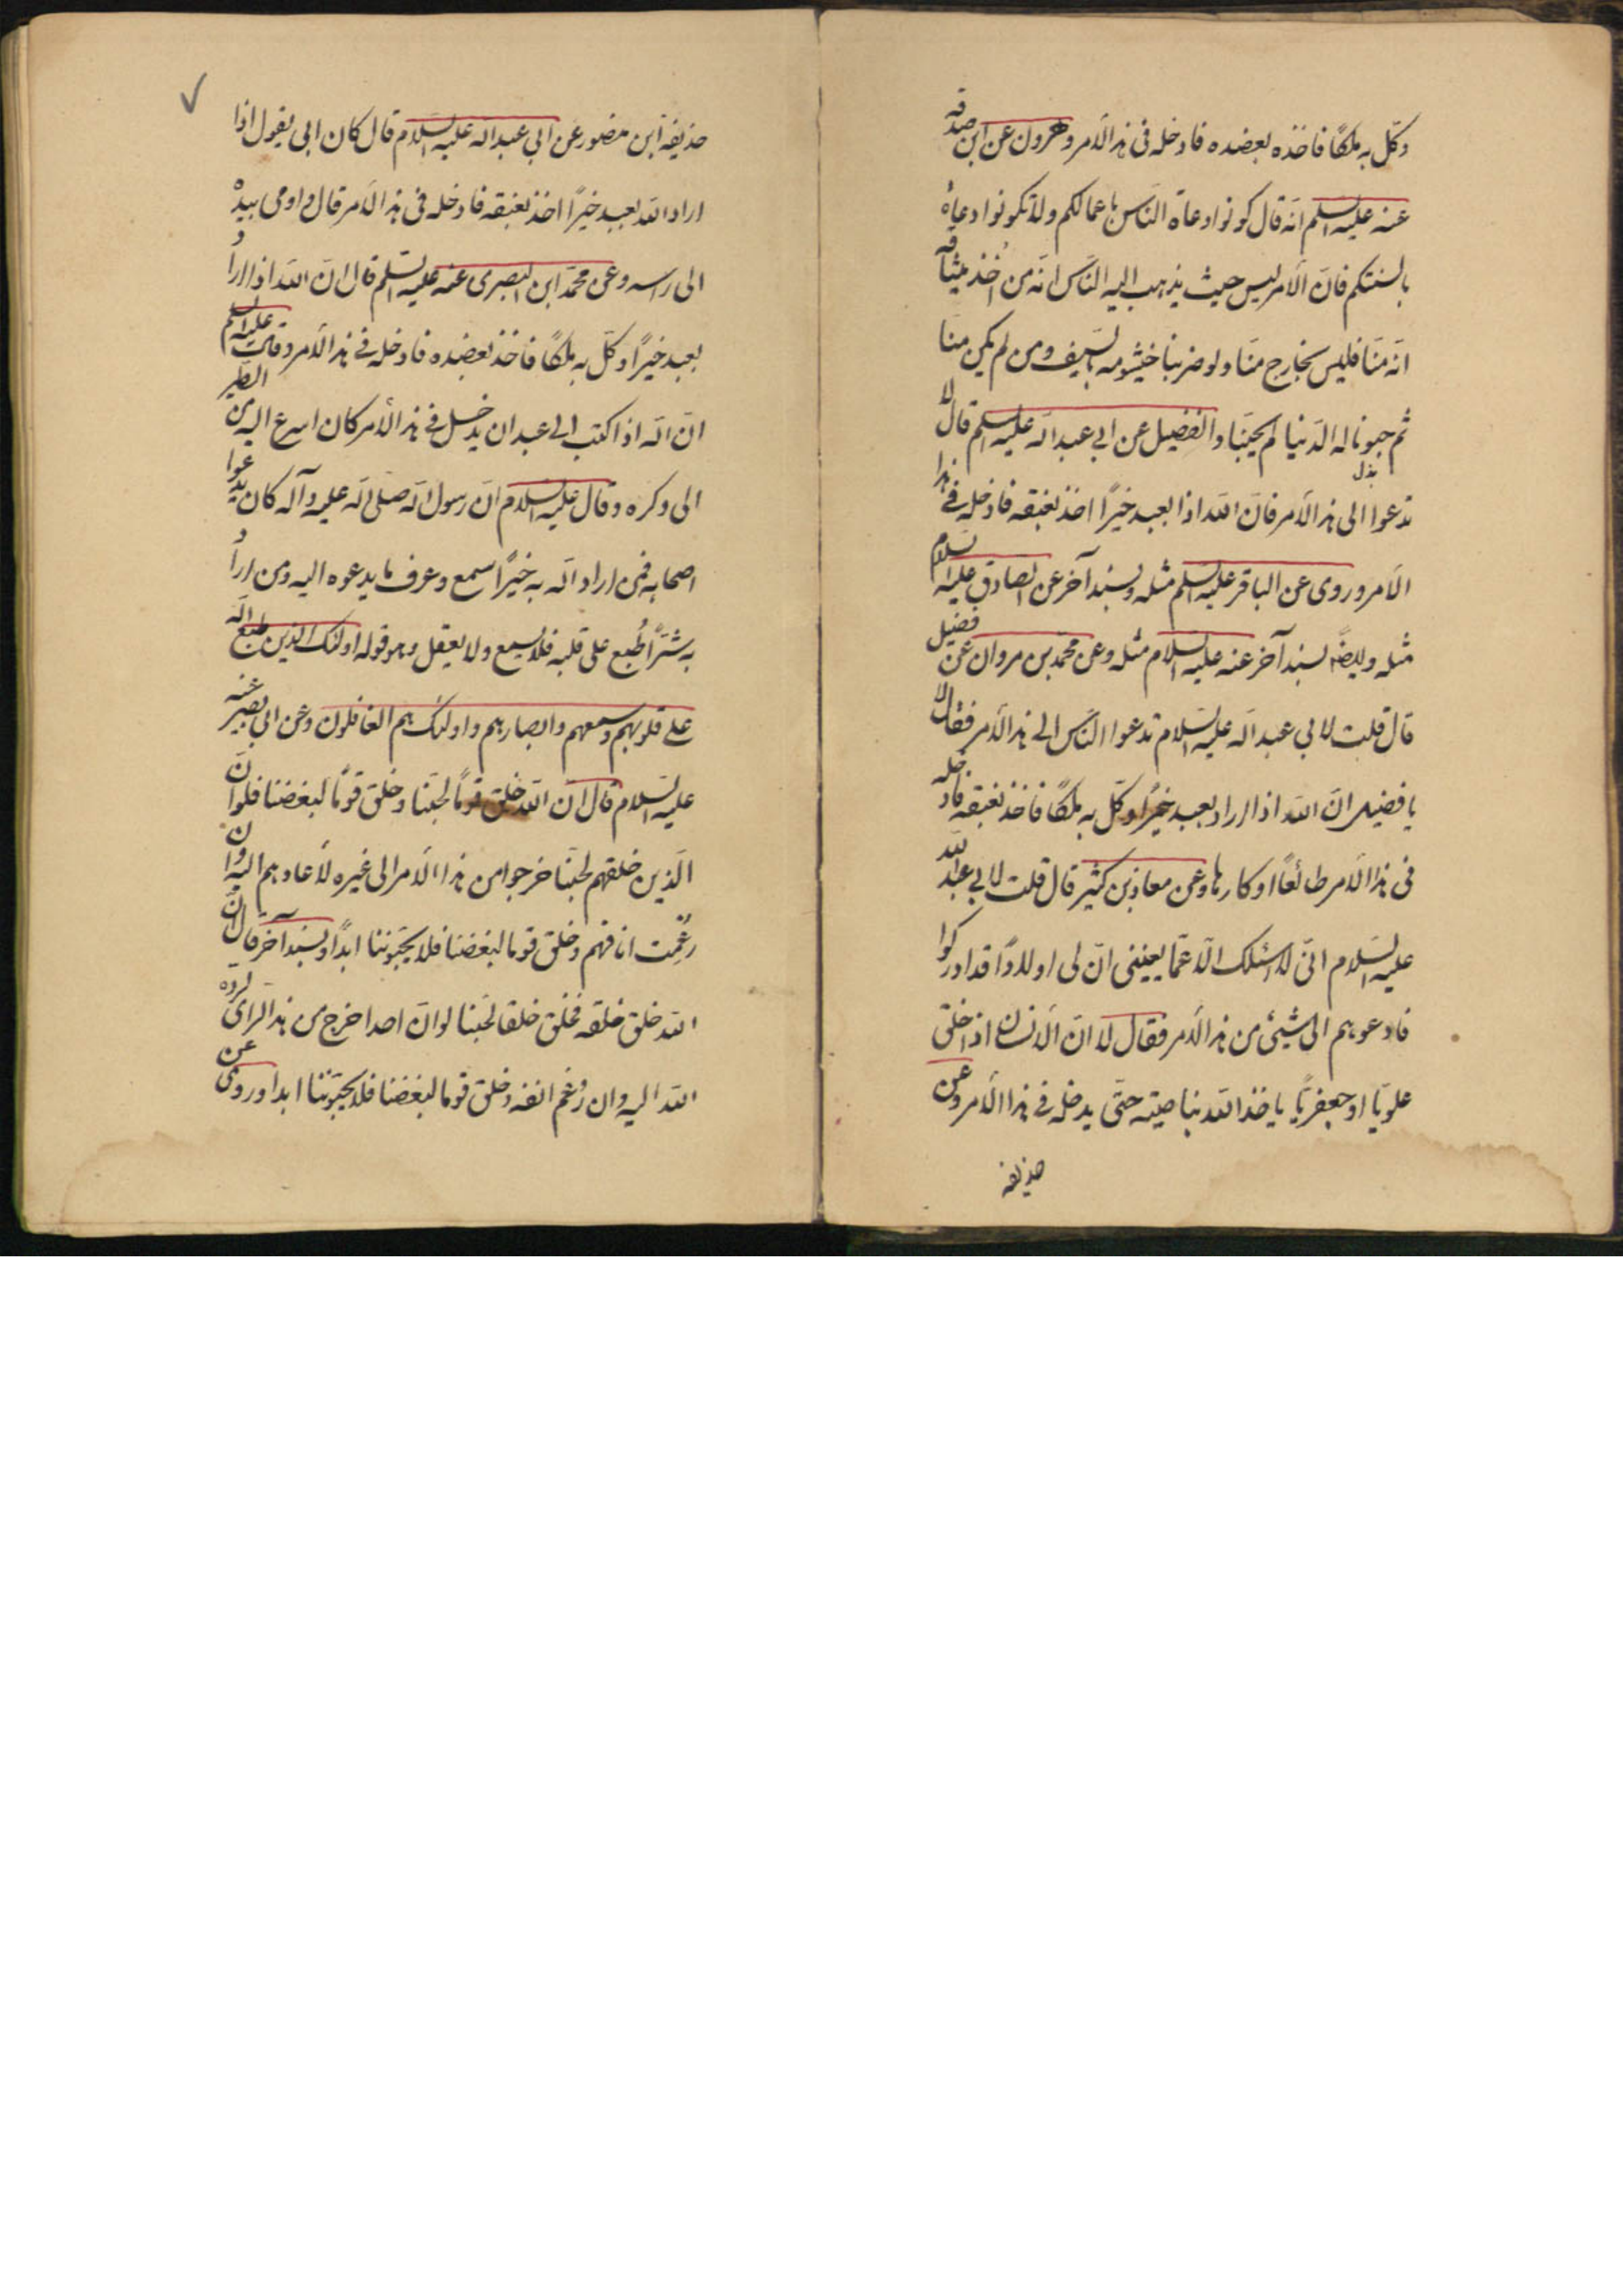 وكّل به ملكًا فاخذه بعضده فادخله فى هذا الامر وهرون عن ابن صدقه
عنه عليه السلم انّه قال كونوا دعاة النّاس باعمالكم ولا تكونوا دعاة
بالسنتكم فانّ الامر ليس حيث يذهب اليه النّاس انّه من اخذ ميثاقه
انّه منّا فليس بخارج منّا ولو ضربنا خيشومه بالسّيف ومن لم يكن منّا
ثم حبونا له الدّنيا لم يحبّنا والفضيل عن ابي عبد الله عليه السلم قال لا
تدعوا الى هذا الامر فانّ الله اذا بعبد خيرًا اخذ بعنقه فادخله في هذا
الامر وروى عن الباقر عليه السلم مثله وبسند آخر عن الصادق عليه السلام
مثله وايضًا بسند آخر عنه عليه السلام مثله وعن محمّد بن مروان عن فضيل
قال قلت لابي عبد الله عليه السّلام ندعوا النّاس الى هذا الامر فقال لا
يا فضيل انّ الله اذا اراد بعبد خيرًا وكّل به ملكًا فاخذ بعنقه فادخله
فى هذا الامر طائعًا او كارها وعن معاذ بن كثير قال قلت لابي عبد الله
عليه السّلام انّى لا اسئلك الّا عمّا يعنينى انّ لى اولادًا قد ادركوا
فادعوهم الى شيئ من هذا الامر فقال لا انّ الانسان اذا خلق
علويّا او جعفريًّا ياخذ الله بناصيته حتّى يدخله في هذا الامر وعن
حذيفه
حذيفة ابن منصور عن ابي عبد الله عليه السّلام قال كان ابى يقول اذا
اراد الله بعبد خيرًا اخذ بعنقه فادخله فى هذا الامر قال واومى بيده
الى راسه وعن محمّد ابن البصرى عنه عليه السّلم قال انّ الله اذا اراد
بعبد خيرًا وكّل به ملكًا فاخذ بعضده فادخله في هذا الامر وقال عليه السلم
انّ الله اذا كتب الى عبد ان يدخل في هذا الامر كان اسرع اليه من الطّير
الى وكره وقال عليه السلام انّ رسول الله صلى الله عليه وآله كان يدعوا
اصحابه فمن اراد الله به خيرًا سمع وعرف ما يدعوه اليه ومن اراد
به شرًّا طُبع على قلبه فلا يسمع ولا يعقل وهو قوله اولئك الذين طبع الله
على قلوبهم وسمعهم وابصارهم واولئك هم الغافلون وعن ابي بصير عنه
عليه السّلام قال انّ الله خلق قومًا لحبّنا وخلق قومًا لبغضنا فلو انّ
الّذين خلقهم لحبّنا خرجوا من هذا الامر الى غيره لأعادهم اليه وان
رُغمت انافهم وخلق قوما لبغضنا فلا يحبّوننا ابدًا وبسند آخر قال انّ
الله خلق خلقه فخلق خلقا لحبّنا لو انّ احدا خرج من هذا الراى لردّه
الله اليه وان رُغم انفه وخلق قوما لبغضنا فلا يحبّوننا ابدا وروى عن